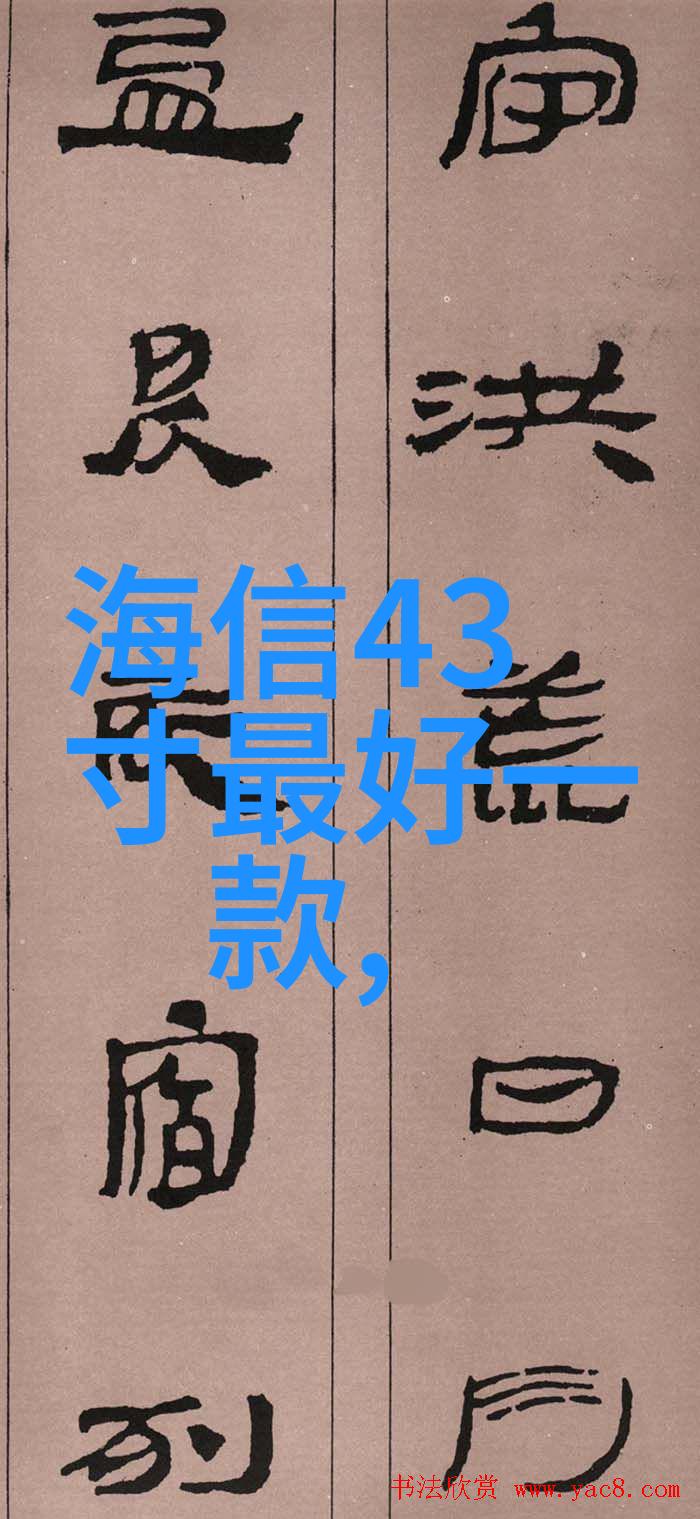 宙洪荒日月
盈昃辰宿列
海信43
寸最好一
款,
书法欣赏 www.yac8.com